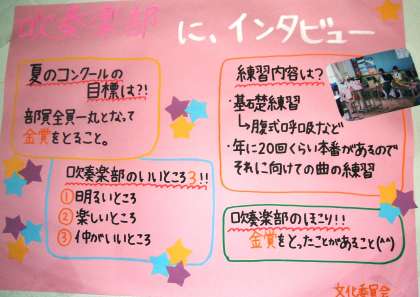 吹奏楽部 に、インタビュー
夏のコンクールの
目標は?!
部員全員一丸となって
金賞をとること。
練習内容は?
・基礎練習
↳腹式呼吸など
・年に20回くらい本番があるので
それに向けての曲の練習
吹奏楽部のいいところ3!!
①明るいところ
②楽しいところ
③仲がいいところ
吹奏楽部のほこり!!
金賞をとったことがあること(^^)
文化委員会